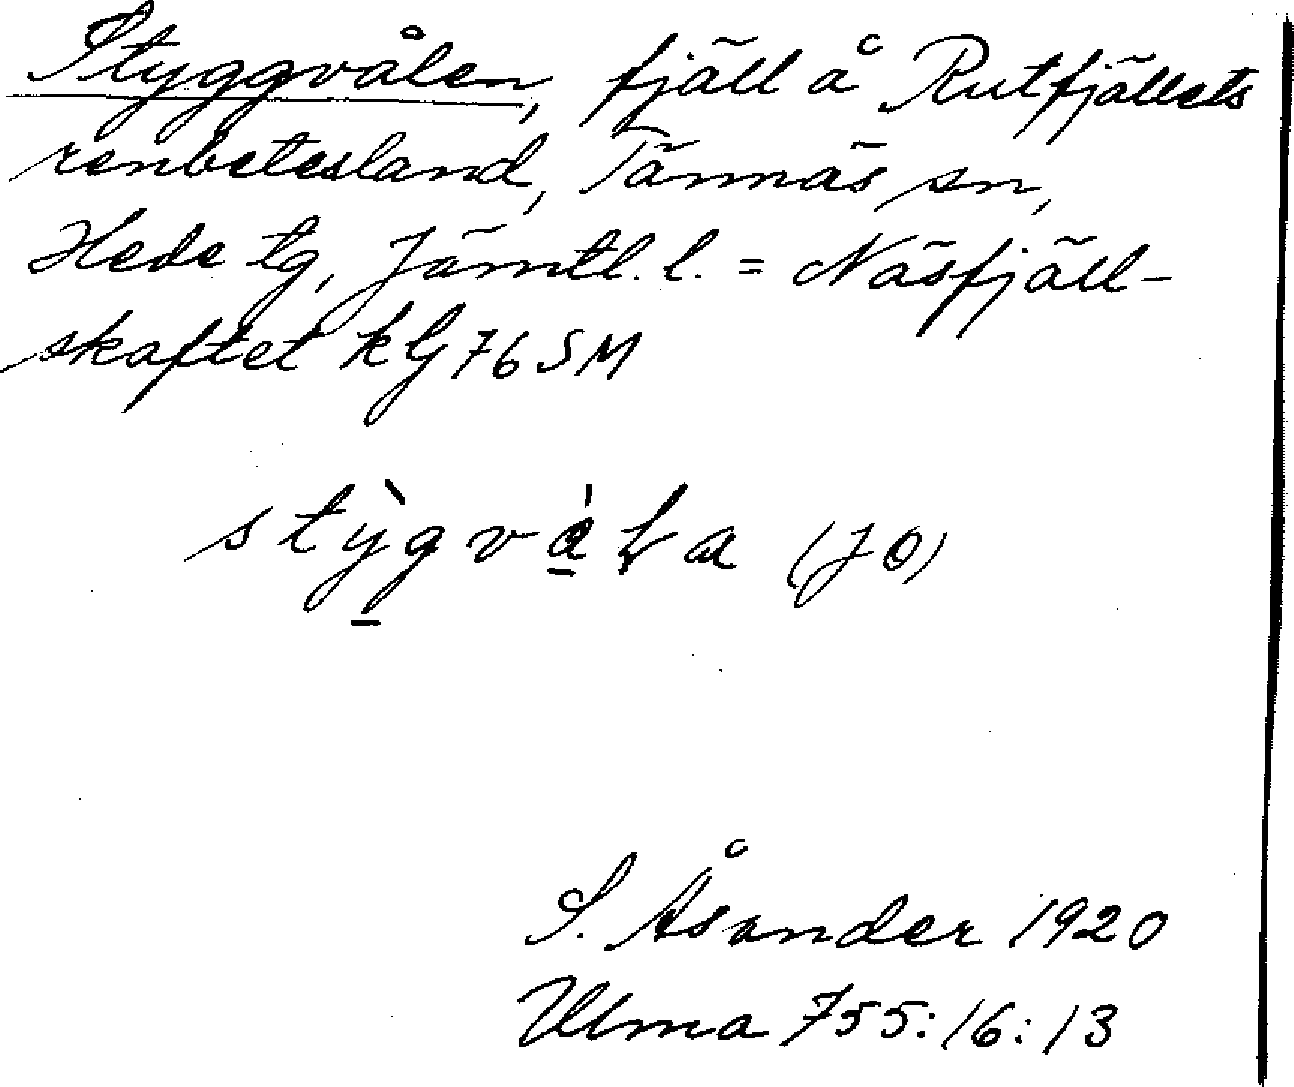 Styggvålen, fjäll å Rutfjällets
renbetesland, Tännäs sn,
Hede tg, Jämtl. l. = Näsfjäll-
skaftet kG 76 SM
stỳgvàɫa (JÖ)
S. Åsander 1920
Ulma 755:16:13